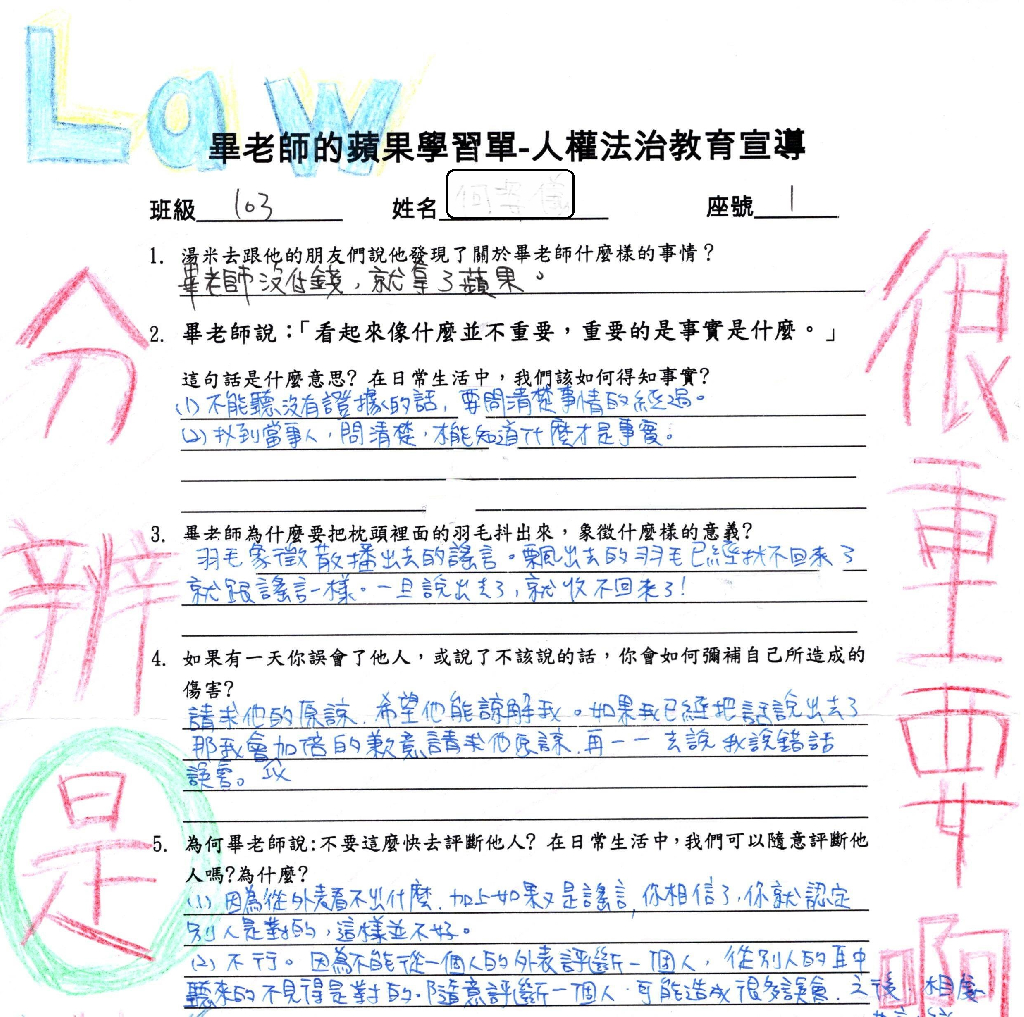 Law
畢老師的蘋果學習單-人權法治教育宣導
班級 103 姓名 座號 1
1. 湯米去跟他的朋友們說他發現了關於畢老師什麼樣的事情？
畢老師沒付錢，就拿了蘋果。
2. 畢老師說：「看起來像什麼並不重要，重要的是事實是什麼。」
這句話是什麼意思? 在日常生活中，我們該如何得知事實?
(1) 不能聽沒有證據的話，要問清楚事情的經過。
(2) 找到當事人，問清楚，才能知道什麼才是事實。
3. 畢老師為什麼要把枕頭裡面的羽毛抖出來，象徵什麼樣的意義?
羽毛象徵散播出去的謠言。飄出去的羽毛已經找不回來了
就跟謠言一樣。一旦說出去了，就收不回來了!
4. 如果有一天你誤會了他人，或說了不該說的話，你會如何彌補自己所造成的
傷害?
請求他的原諒，希望他能諒解我。如果我已經把話說出去了
那我會加倍的歉意請求他原諒，再一一去說我說錯話
誤害。
5. 為何畢老師說:不要這麼快去評斷他人? 在日常生活中，我們可以隨意評斷他
人嗎?為什麼?
(1) 因為從外表看不出什麼，加上如果又是謠言，你相信了，你就認定
別人是對的，這樣並不好。
(2) 不行。因為不能從一個人的外表評斷一個人，從別人的耳中
聽來的不見得是對的。隨意評斷一個人，可能造成很多誤會，之後，相處
分辨是
很重要啊